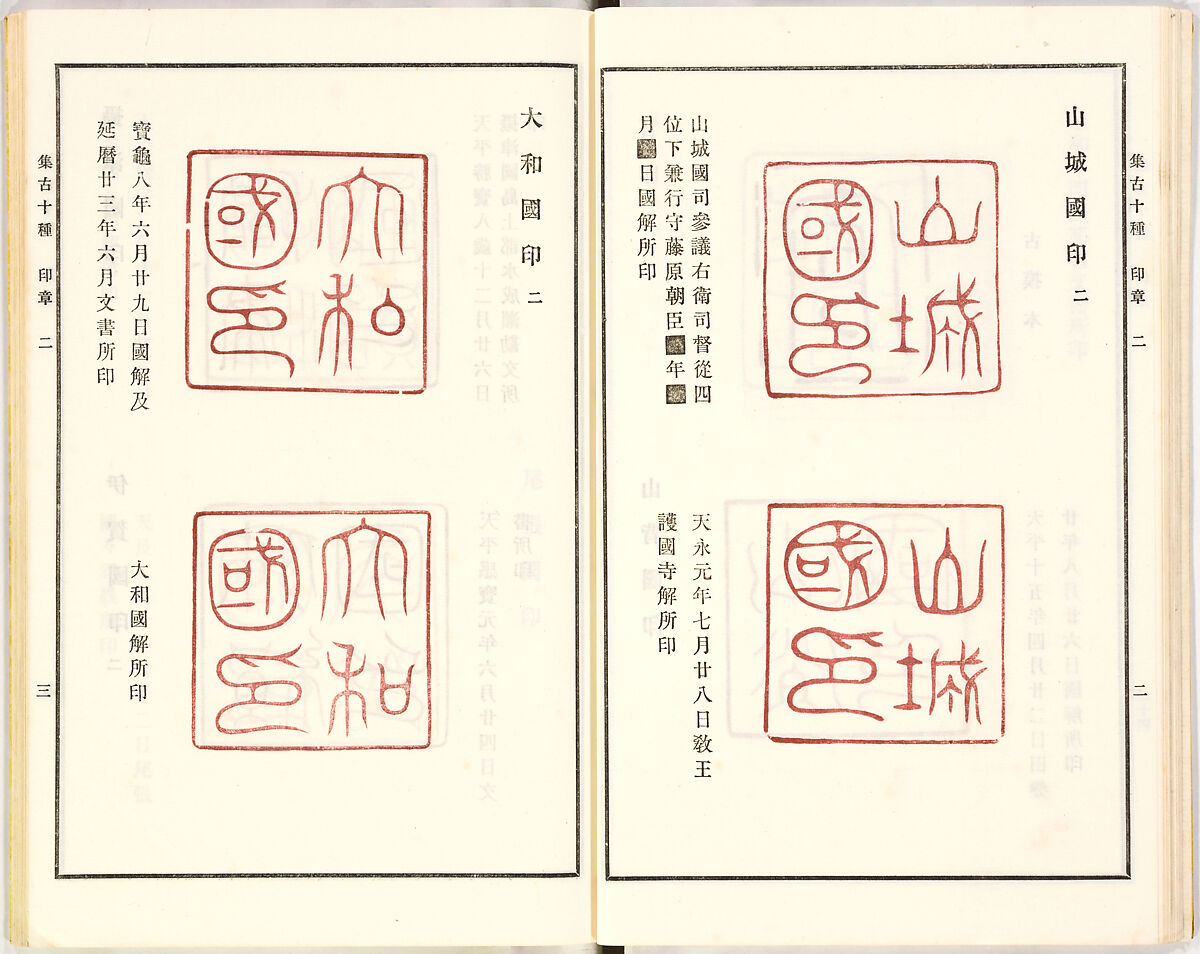 集古十種 印章 二
二
山城國印 二
山城
國印
山城國司參議右衛司督從四
位下兼行守藤原朝臣 年
月 日國解所印
山城
國印
天永元年七月廿八日敎王
護國寺解所印
大和國印 二
大和
國印
寶龜八年六月廿九日國解及
延曆廿三年六月文書所印
大和
國印
大和國解所印
集古十種 印章 二
三